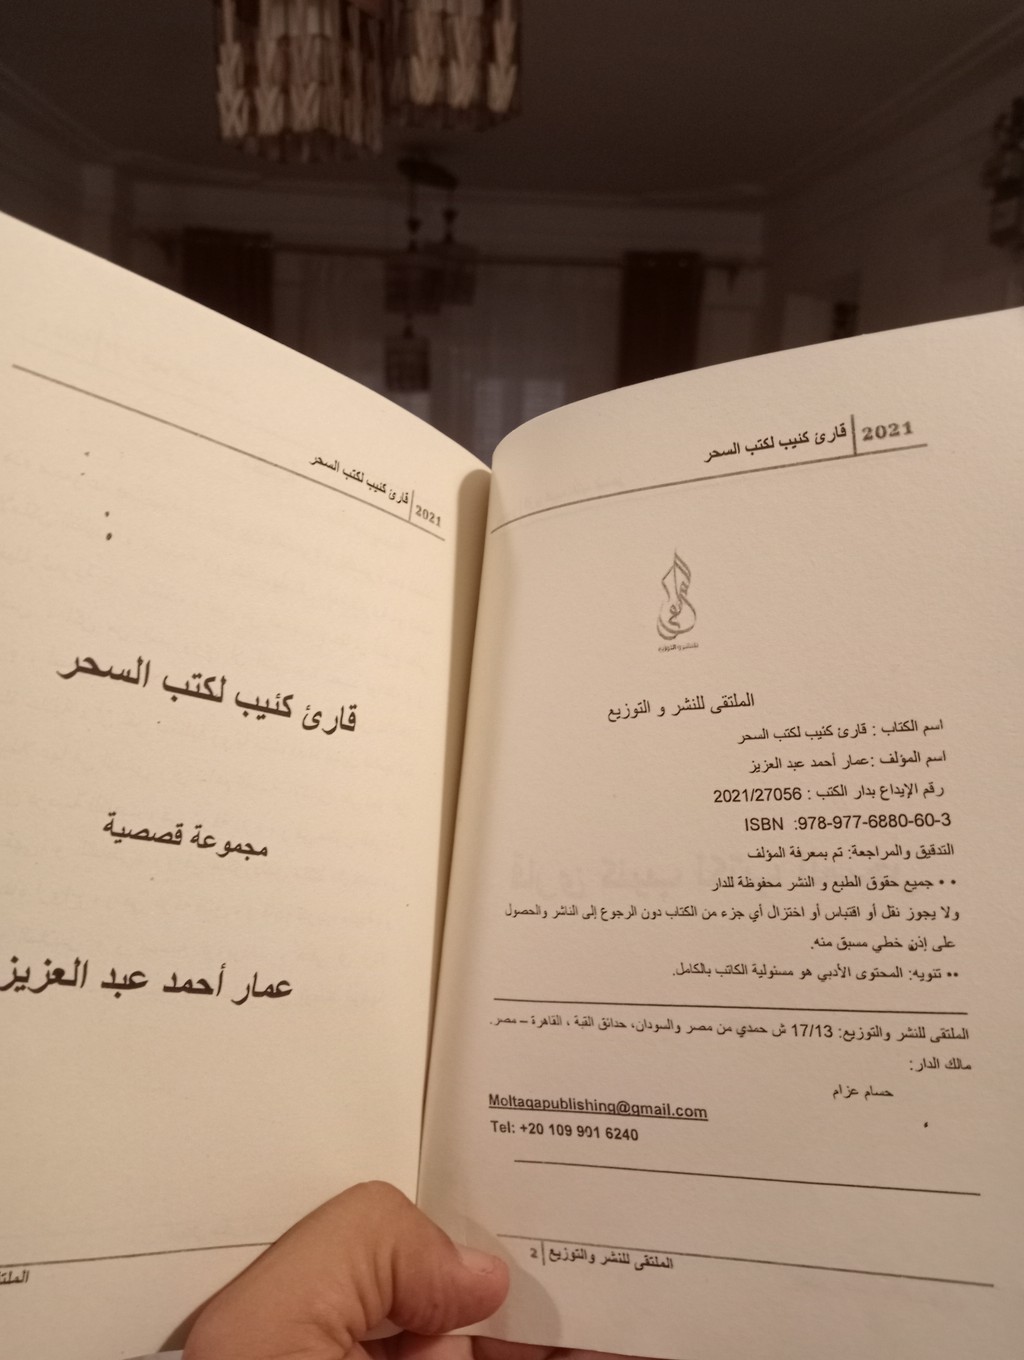 2021 قارئ كئيب لكتب السحر
الملتقى للنشر و التوزيع
اسم الكتاب : قارئ كئيب لكتب السحر
اسم المؤلف :عمار أحمد عبد العزيز
رقم الإيداع بدار الكتب : 2021/27056
ISBN :978-977-6880-60-3
التدقيق والمراجعة: تم بمعرفة المؤلف
•• جميع حقوق الطبع و النشر محفوظة للدار
ولا يجوز نقل أو اقتباس أو اختزال أي جزء من الكتاب دون الرجوع إلى الناشر والحصول
على إذن خطي مسبق منه.
•• تنويه: المحتوى الأدبي هو مسئولية الكاتب بالكامل.
الملتقى للنشر والتوزيع: 17/13 ش حمدي من مصر والسودان، حدائق القبة ، القاهرة – مصر.
مالك الدار:
حسام عزام
Moltaqapublishing@gmail.com
Tel: +20 109 901 6240
الملتقى للنشر والتوزيع 2
2021 قارئ كئيب لكتب السحر
قارئ كئيب لكتب السحر
مجموعة قصصية
عمار أحمد عبد العزيز